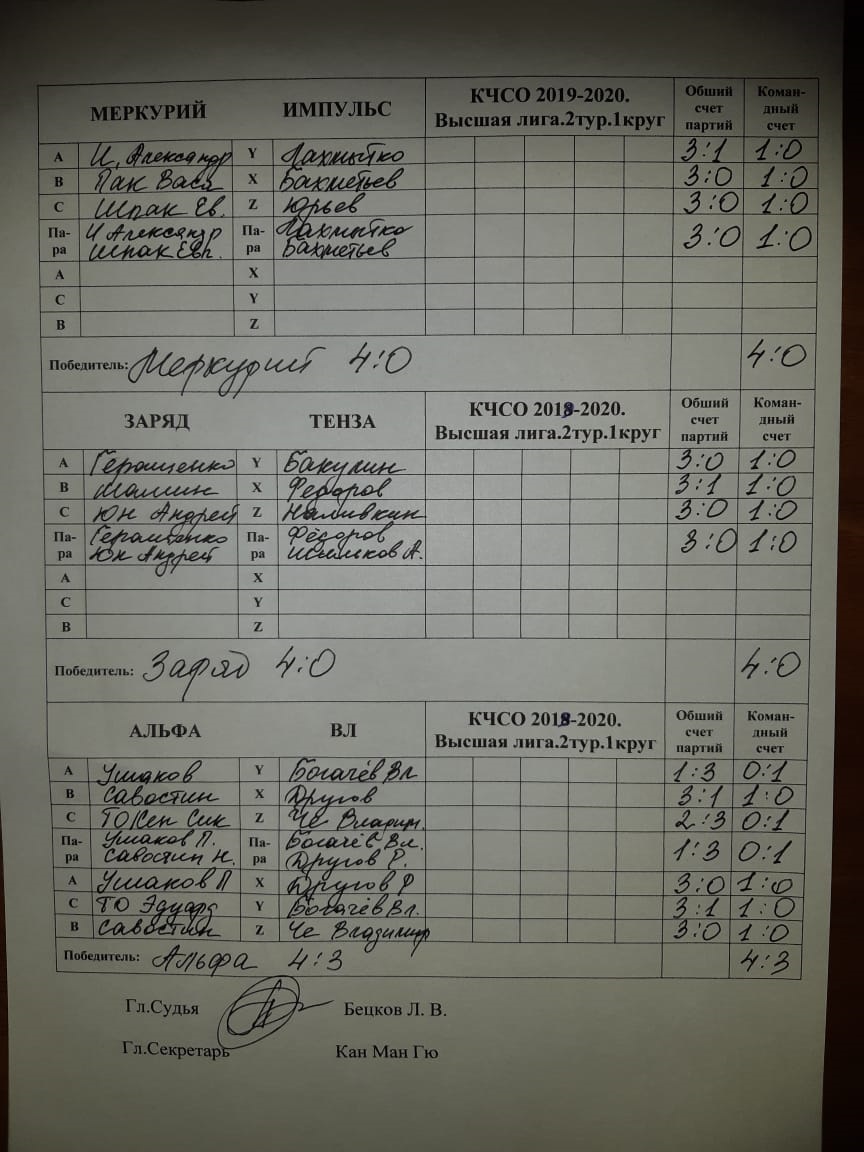 МЕРКУРИЙ ИМПУЛЬС КЧСО 2019-2020. Высшая лига.2тур.1круг Обший счет партий Коман-дный счет
А И, Александр Y Лахмытко 3:1 1:0
В Пак Вася X Бахметьев 3:0 1:0
С Шпак Ев. Z Юрьев 3:0 1:0
Па-ра И Александр Шпак Евг. Па-ра Лахмытко Бахметьев 3:0 1:0
А X
С Y
В Z
Победитель: Меркурий 4:0 4:0
ЗАРЯД ТЕНЗА КЧСО 2019-2020. Высшая лига.2тур.1круг Обший счет партий Коман-дный счет
А Геращенко Y Бакулин 3:0 1:0
В Малин X Федоров 3:1 1:0
С Юн Андрей Z Наливкин 3:0 1:0
Па-ра Геращенко Юн Андрей Па-ра Фёдоров А. 3:0 1:0
А X
С Y
В Z
Победитель: Заряд 4:0 4:0
АЛЬФА ВЛ КЧСО 2019-2020. Высшая лига.2тур.1круг Обший счет партий Коман-дный счет
А Ушаков Y Богачёв Вл 1:3 0:1
В Савостин X Другов 3:1 1:0
С ТО Кен Сик Z Че Владим. 2:3 0:1
Па-ра Ушаков П. Савостин Н. Па-ра Богачёв Вл. Другов Р. 1:3 0:1
А Ушаков П X Другов Р 3:0 1:0
С ТО Эдуард Y Богачёв Вл. 3:1 1:0
В Савостин Z Че Владимир 3:0 1:0
Победитель: Альфа 4:3 4:3
Гл.Судья Бецков Л. В.
Гл.Секретарь Кан Ман Гю